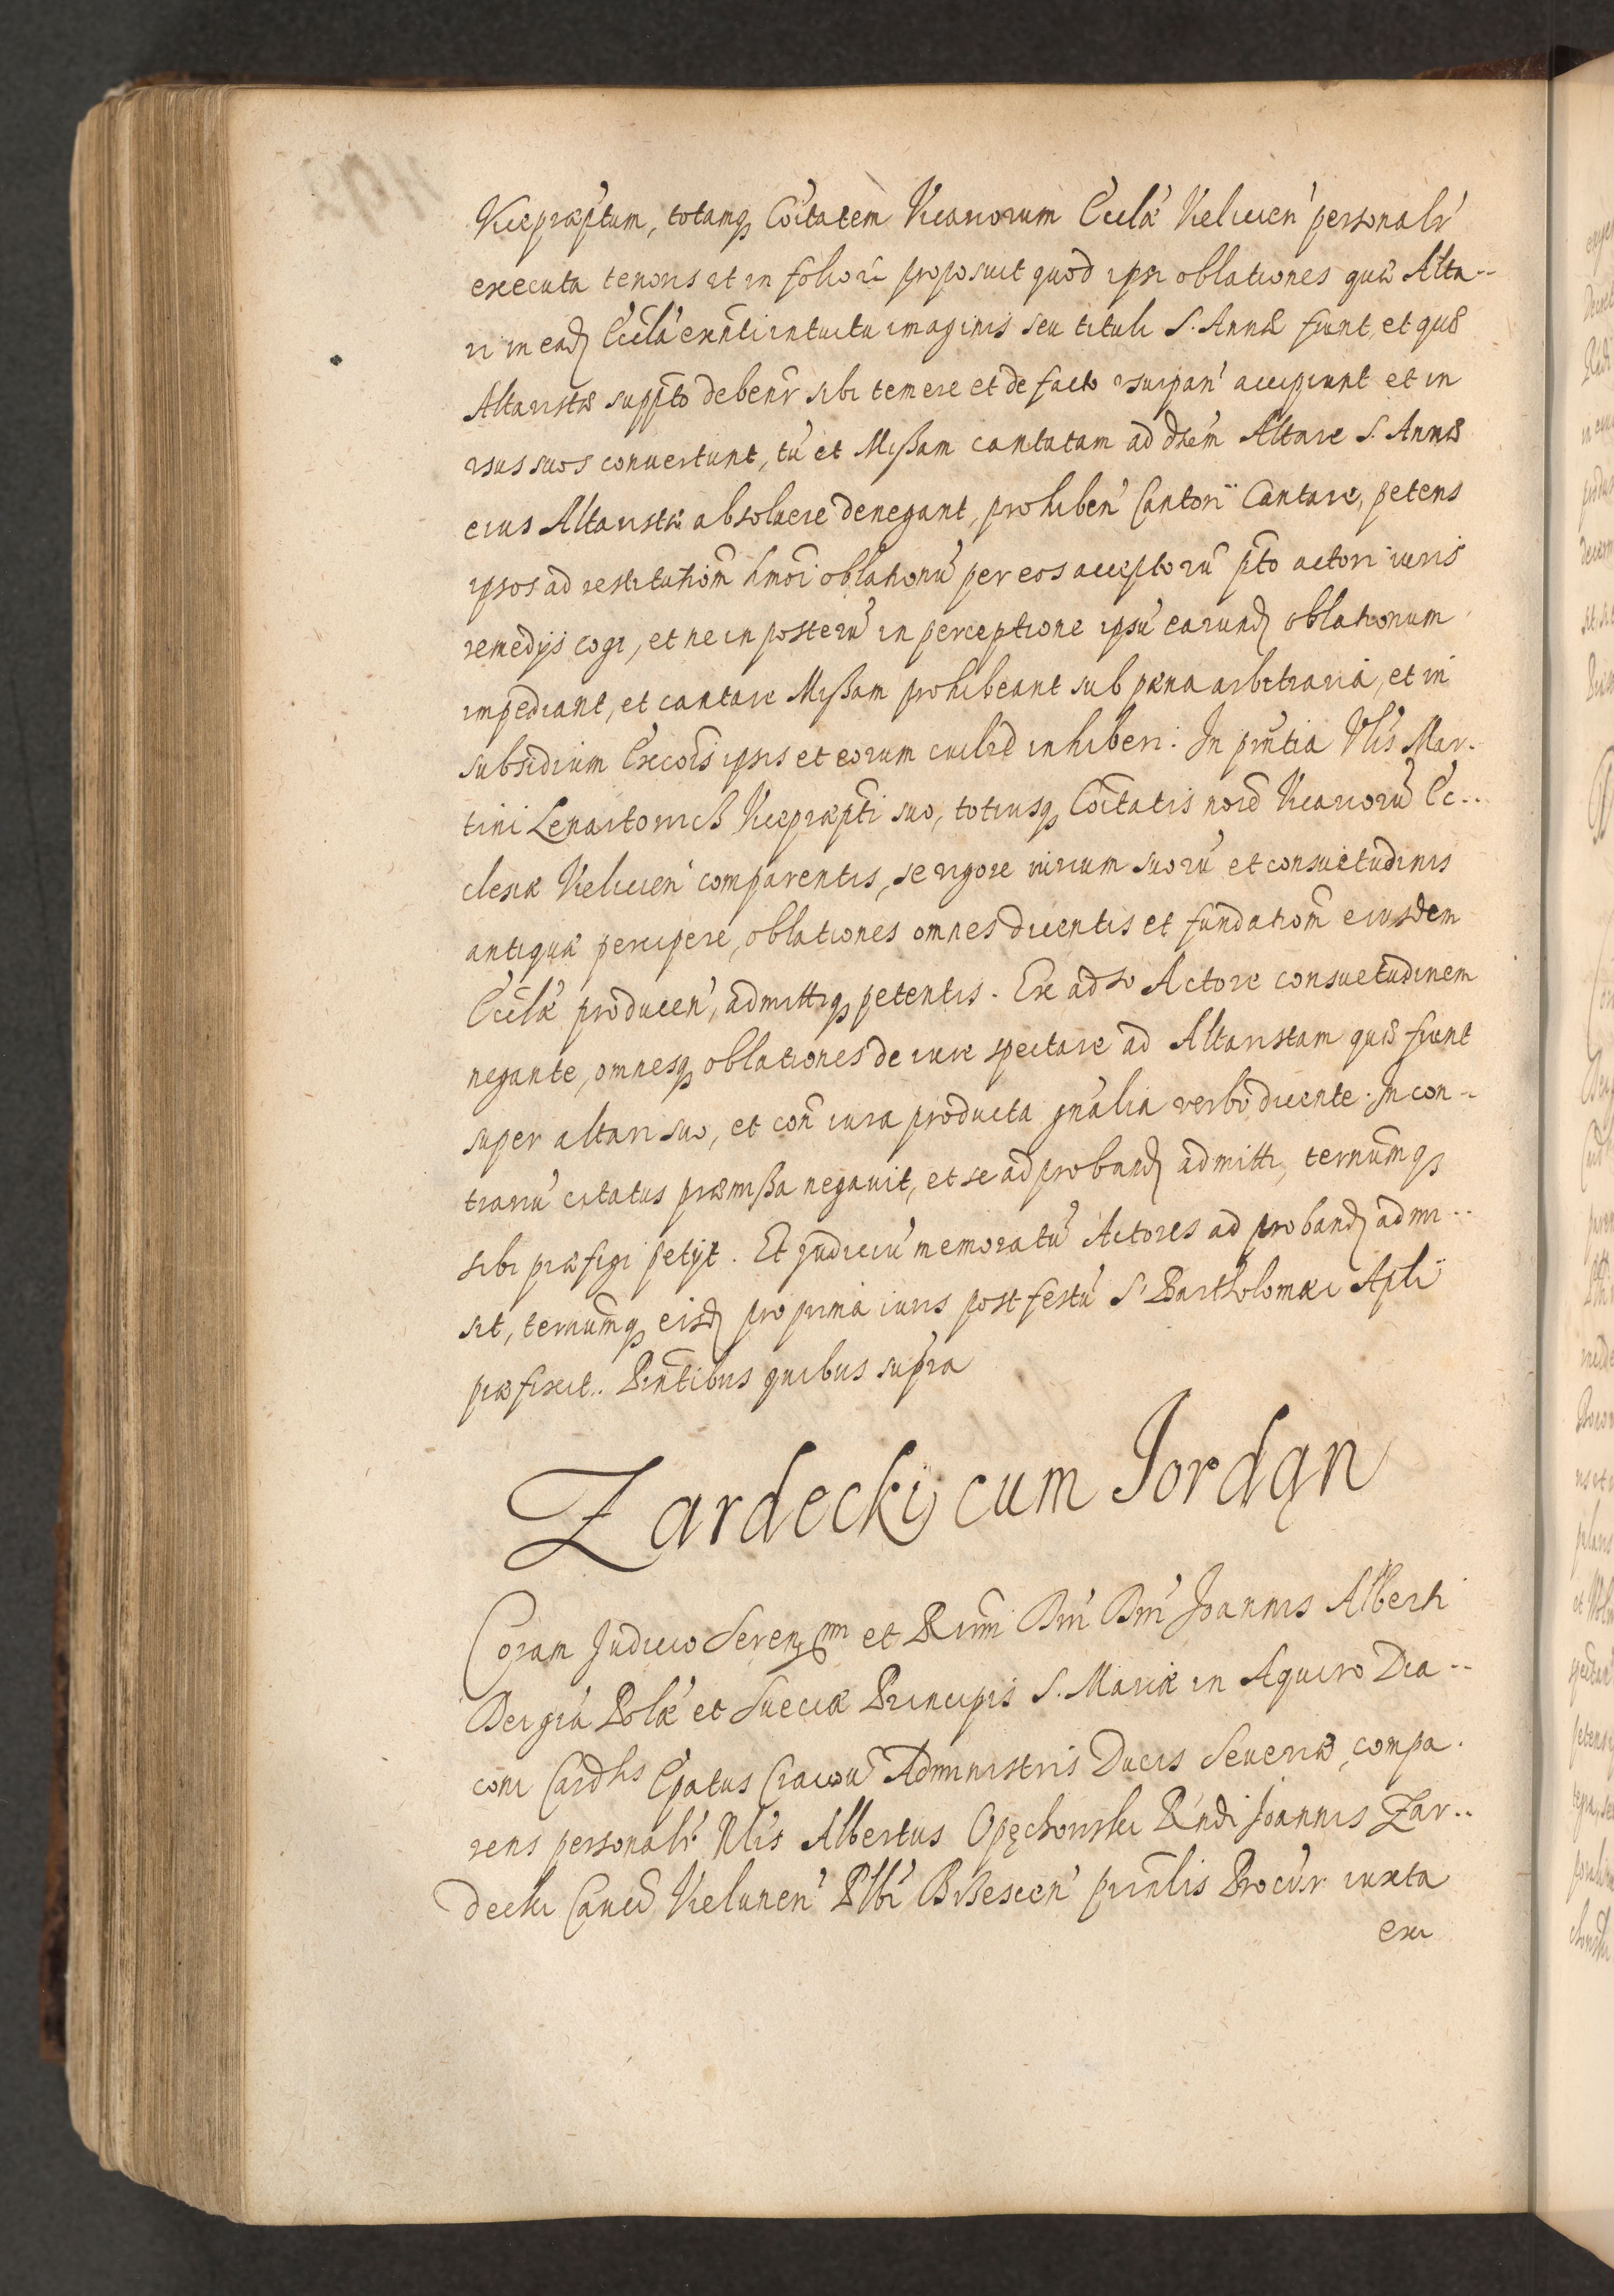 Vicepraep̃tum, totamq̨ Cõitatem Vicariorum Eccl̃ae Vielicien̾ personalr̾
executa tenoris ut in folio ri proposuit quod ipsi oblationes quae Alta-
ri in ead̨ Eccl̃a exñti intuitu imaginis seu tituli S. Annae fiunt, et quae
Altaristae supp̃to debenr̃ sibi temere et de facto vsurpan̾ accipiunt et in
vsus suos conuertunt, tũ et Missam cantatam ad dc̃em Altare S. Annae
eius Altaristae absoluere denegant, prohiben̾ Cantori Cantare, petens
ipsos ad restitutiom̃ hm̃oi oblationũ per eos acceptorũ p̃to actori iuris
remedijs cogi, et ne in posterũ in perceptione ipsũ earund̨ oblationum
impediant, et cantare Missam prohibeant sub paena arbitraria, et in
subsidium Excõis ipsis et eorum cuilid inhiberi. In pñtia Vl̃is Mar-
tini Lenartowicz Vicepraep̃ti suo, totiusq̨ Cõitatis noiẽ Vicariorũ Ec-
clesiae Vielicien̾ comparentis, se vigore iurium suorũ et consuetudinis
antiquae percipere, oblationes omnes dicentis et fundatiom̃ eiusdem
Eccl̃ae producen̾, admittiq̨ petentis. Ex adso Actore consuetudinem
negante, omnesq̨ oblationes de iure spectare ad Altaristam quae fiunt
super altari suo, et coñ iura producta gñalia verbo dicente. In con-
trariũ citatus praemissa negauit, et se ad proband̨ admitti, ternumq̨
sibi praefigi petijt. Et Judiciũ memoratũ Actores ad proband̨ admi-
sit, ternumq̨ eisd̨ pro prima iuris post festũ S. Bartholomaei Apli
praefixit. Pr̃ntibus quibus supra
Zardeckij cum Jordąn
Coram Judicio Serenmi et Rm̃i Dñi Dñi Joannis Alberti
Dei gr̃a Pol̃ae et Sueciae Principis S. Mariae in Aquiro Dia-
coni Cardlis Ep̃atus Cracou̾ Administris Ducis Seueriae, compa-
rens personalr̾ Nl̃is Albertus Opęchowski Rñdi Joannis Zar-
decki Canci Vielunen̾ Plbi Brzescen̾ prinl̃is Procur̾ iuxta
exe